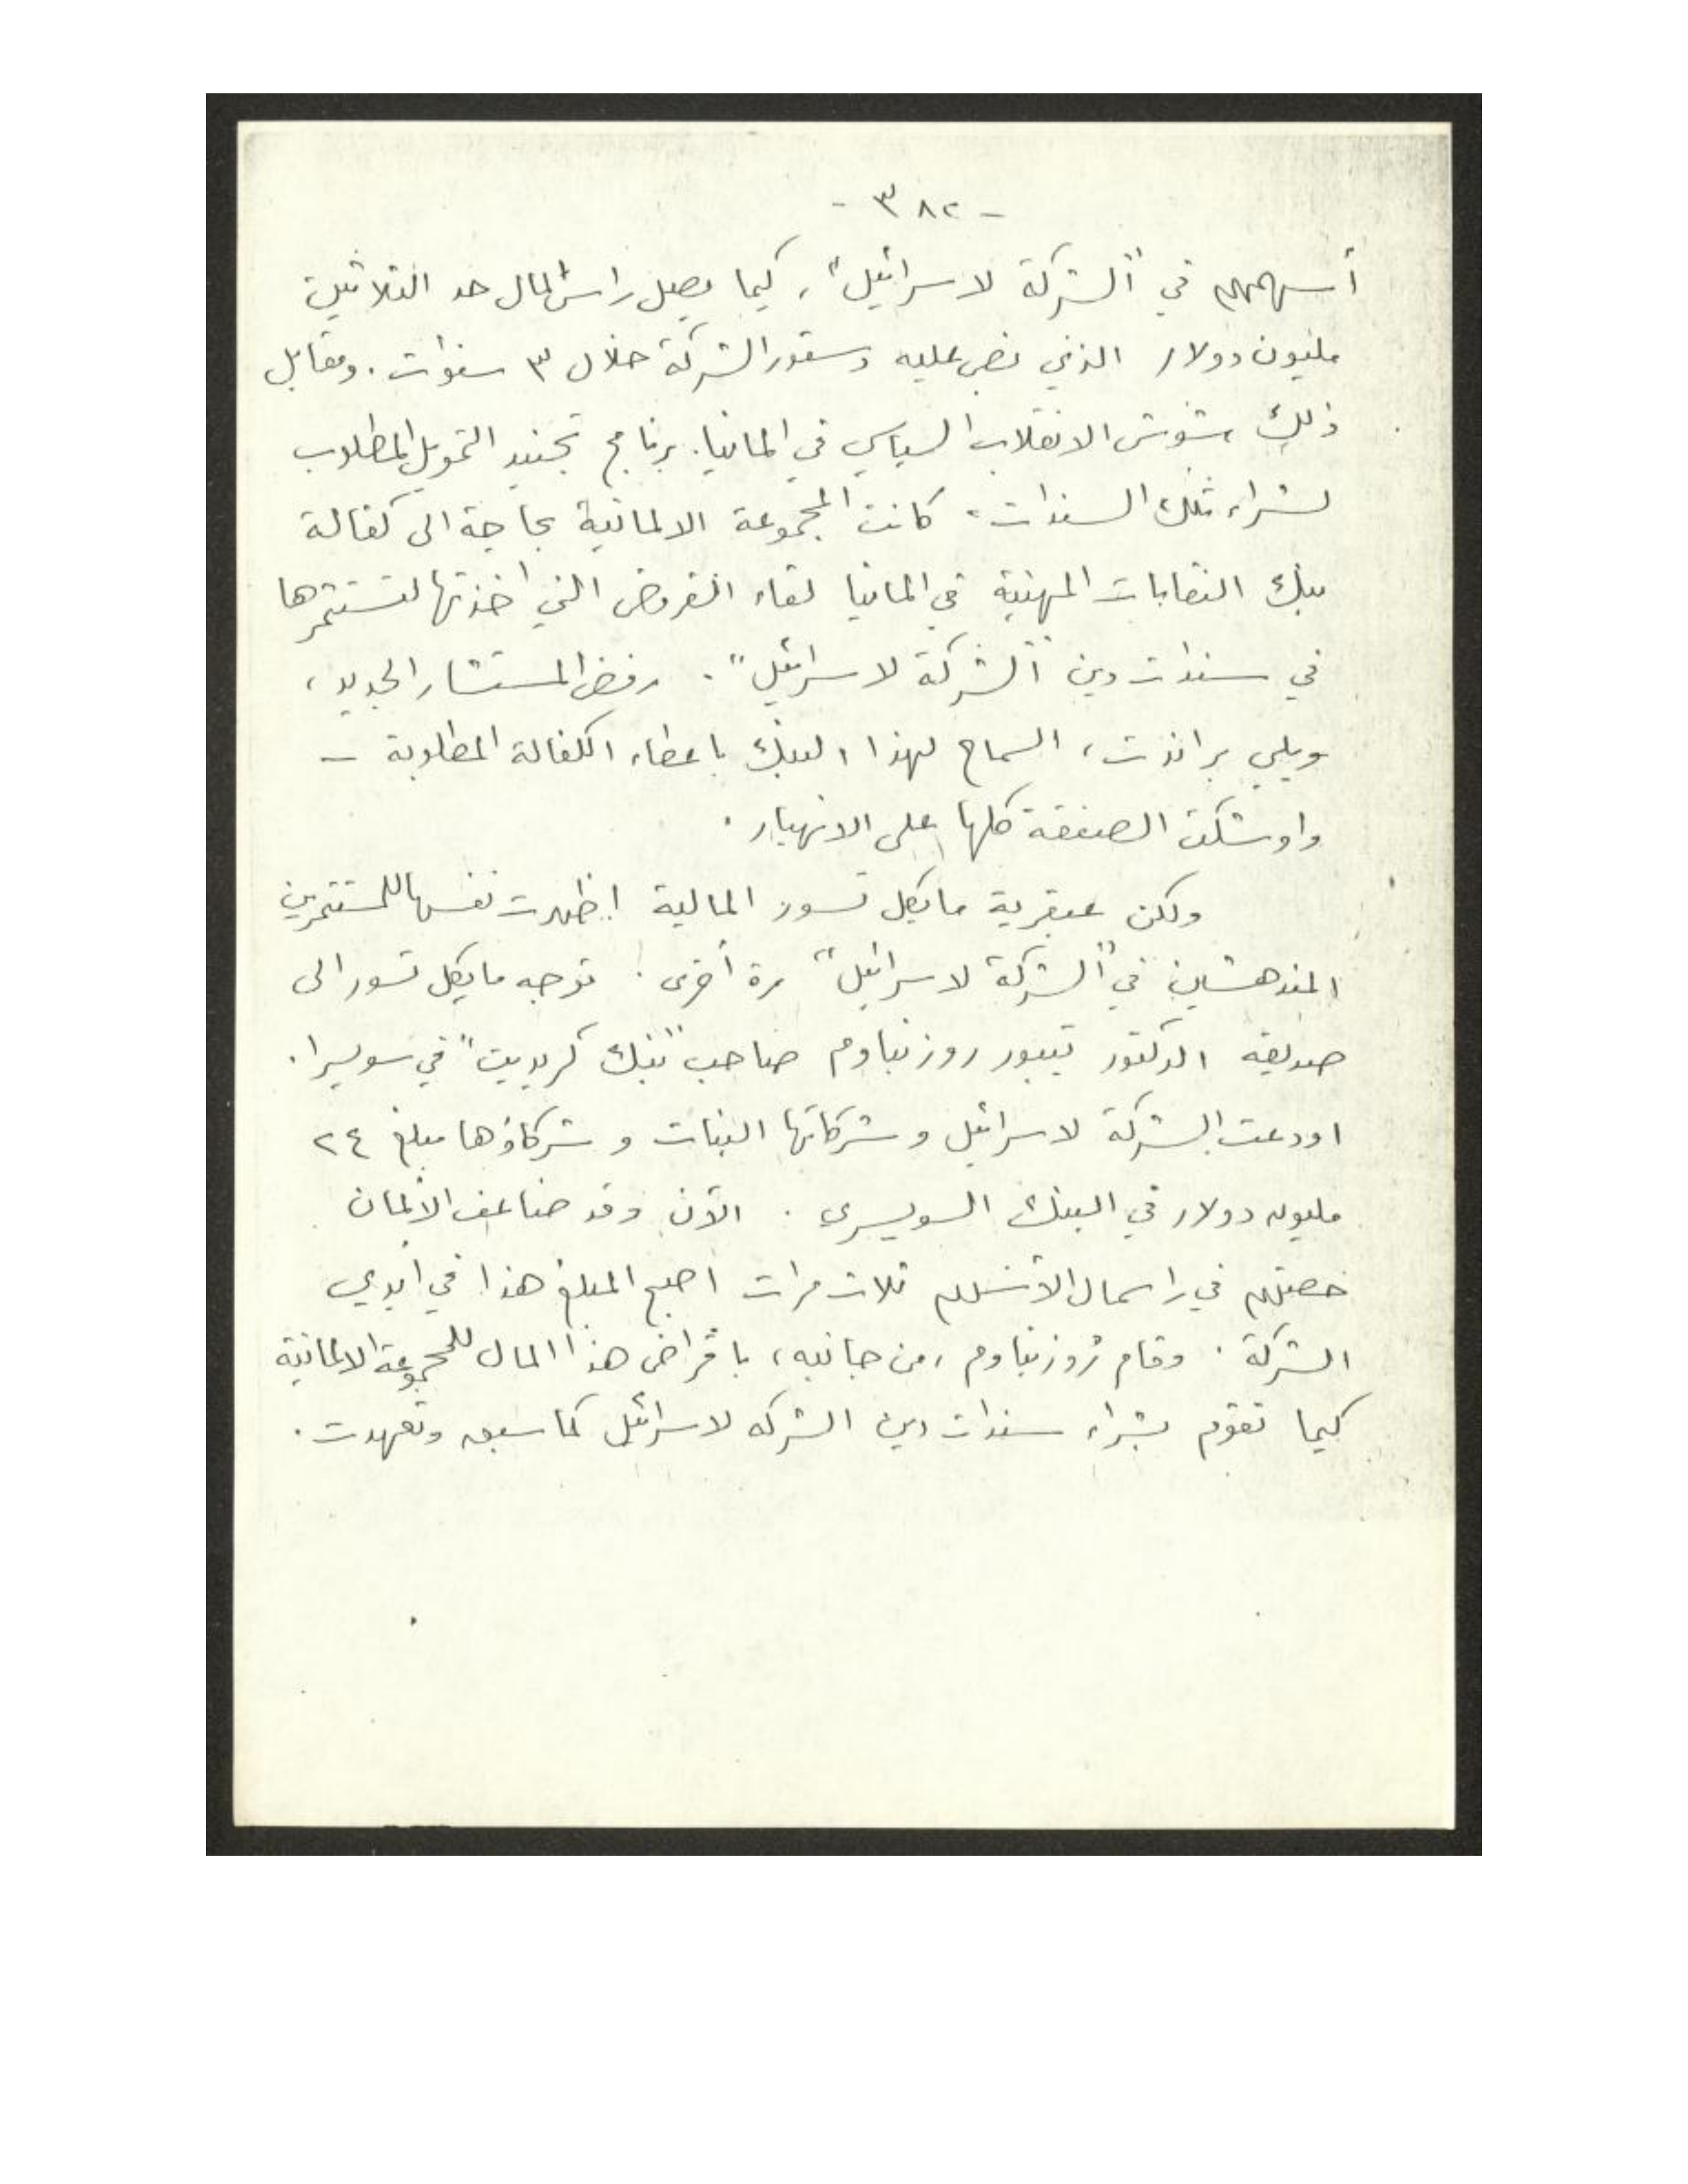 - ٣٨٢ -
أسهمهم في "الشركة لاسرائيل"، كيما يصل رأس المال حد الثلاثين
مليون دولار الذي نص عليه دستور الشركة خلال ٣ سنوات. ومقابل
ذلك شوش الانقلاب السياسي في المانيا. برنامج تجنيد التمويل المطلوب
لشراء تلك السندات. كانت المجموعة الالمانية بحاجة الى كفالة
بنك النقابات المهنية في المانيا لقاء القروض التي اخذتها لتستثمرها
في سندات دين "الشركة لاسرائيل". رفض المستشار الجديد،
ويلي براندت، السماح لهذا البنك باعطاء الكفالة المطلوبة -
واوشكت الصفقة كلها على الانهيار.
ولكن عبقرية مايكل تسور المالية اظهرت نفسها للمستثمرين
المندهشين في "الشركة لاسرائيل" مرة أخرى. توجه مايكل تسور الى
صديقه الدكتور تيبور روزنباوم صاحب "بنك كريديت" في سويسرا.
اودعت الشركة لاسرائيل وشركاتها البنات وشركاؤها مبلغ ٢٤
مليون دولار في البنك السويسري. الآن وقد ضاعف الألمان
حصتهم في راسمال الأسهم ثلاث مرات اصبح المبلغ هذا في أيدي
الشركة. وقام روزنباوم، من جانبه، باقراض هذا المال للمجموعة الالمانية
كيما تقوم بشراء سندات دين الشركه لاسرائيل كما سبق وتعهدت.